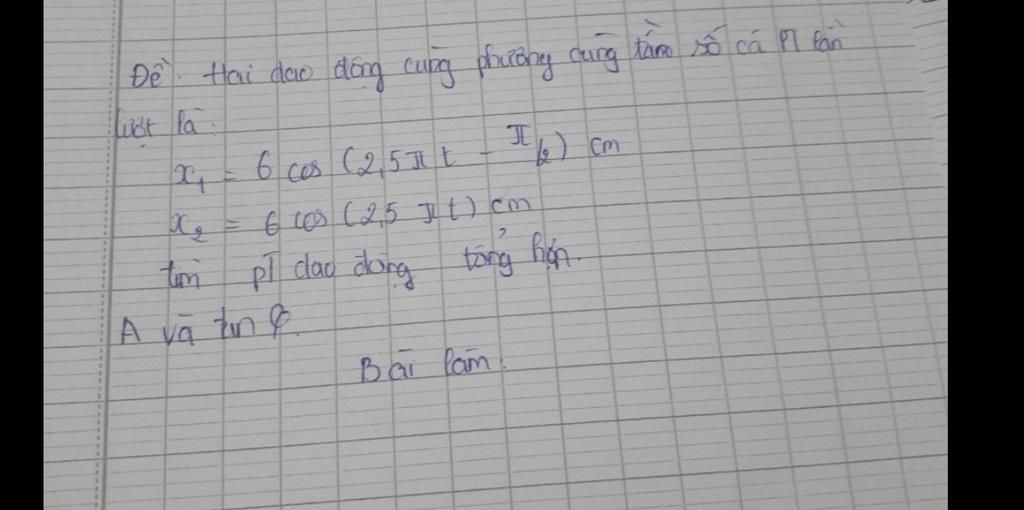 Đề. Hai dao động cùng phương cùng tần số có PT lần
lượt là:
x₁ = 6 cos (2,5πt - π/2) cm
x₂ = 6 cos (2,5 πt) cm
tìm PT dao động tổng hợp.
A và tìm φ.
Bài làm.